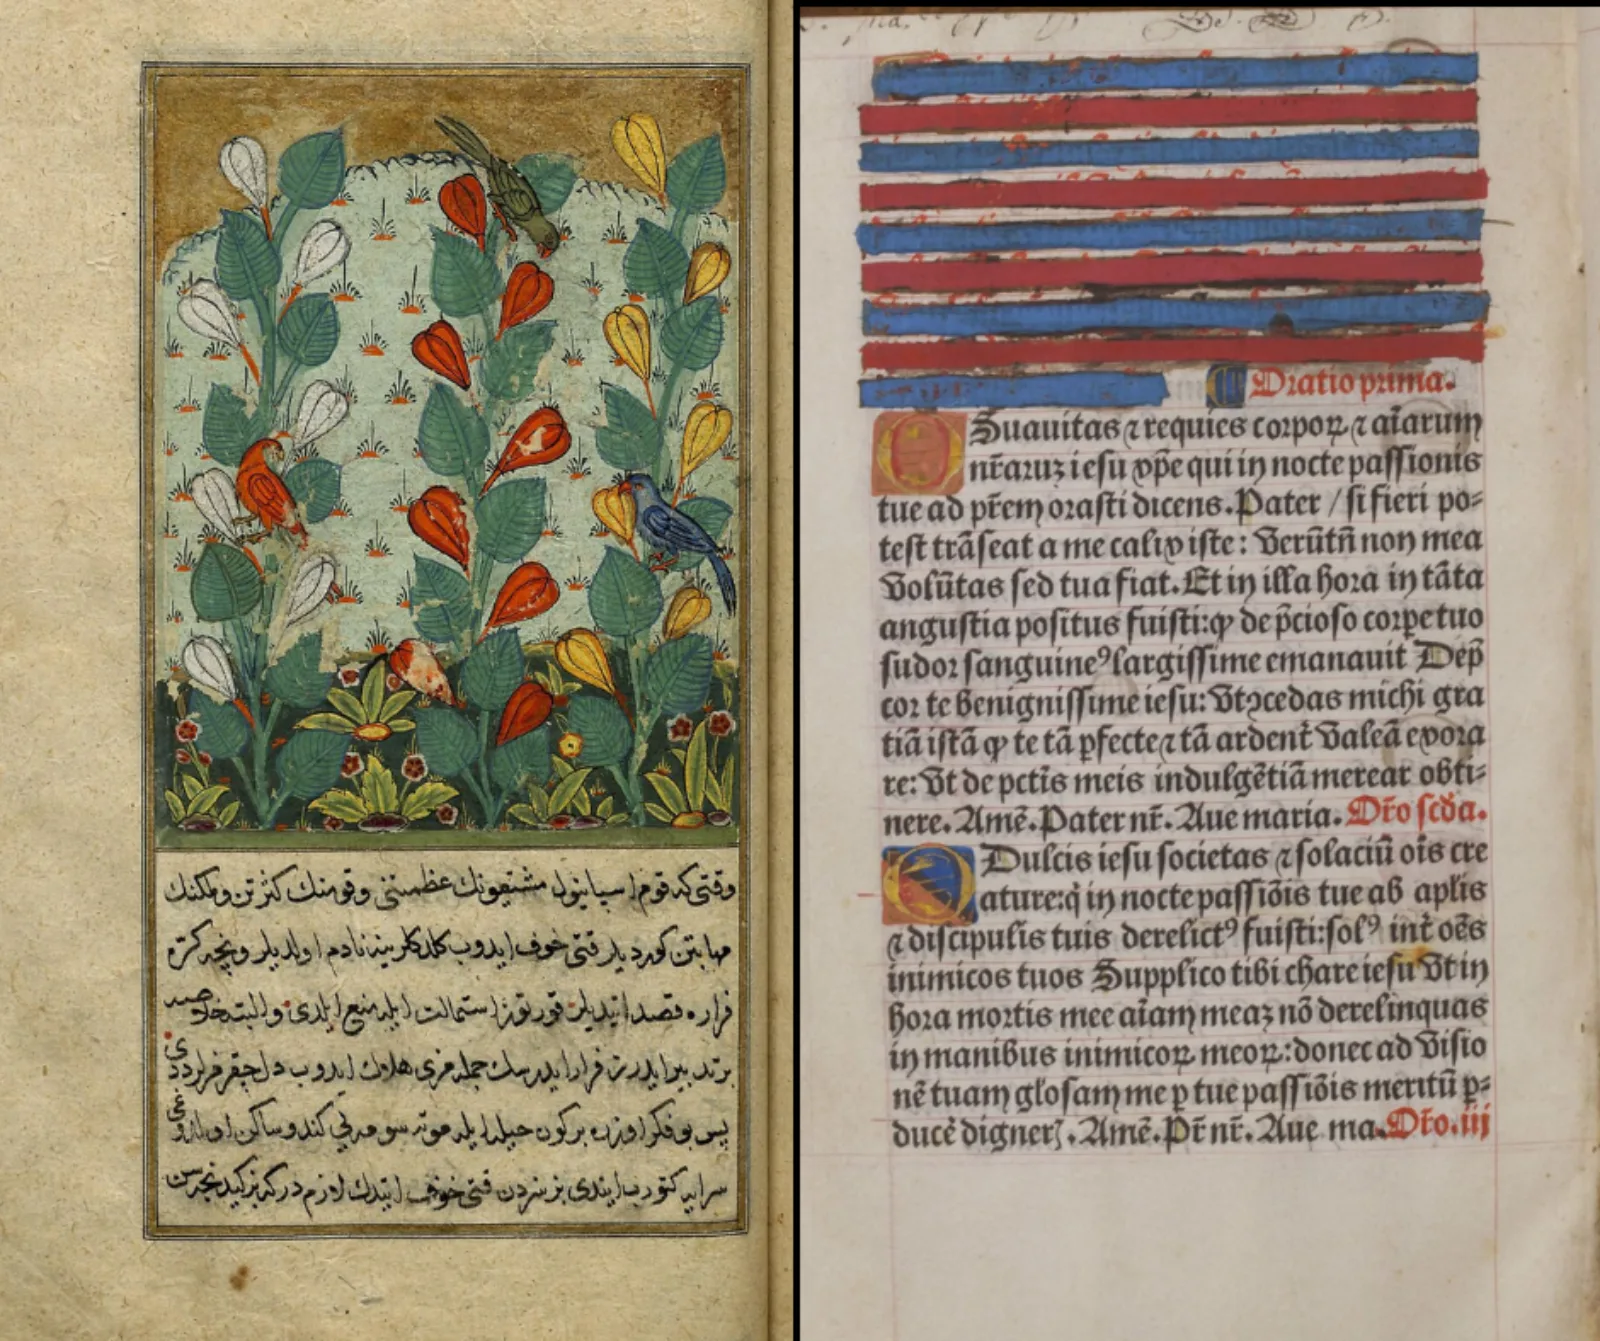 وقتی که قوم اسپانیول مشتعونك عظمتنی وقومنك کثرتن وملکنك
مهابتن کوردیلر قتی خوف ایدوب کلدکلرینه نادم اولدیلر ونیجه کره
فراره قصد ایتدیلر قورتوز استمالت ایله منع ایلدی والبته
فرار ایدرسك جمله مزی هلاك ایدوب
پس بو فکر اوزره برکون حیله ایله کندو ساکن اولدوغی
سرایه کتورب ایتدی بز سزدن قتی خوف ایتدك لازم در که
Oratio prima.
O Suauitas ⁊ requies corpoꝝ ⁊ aīarum
nr̄aruꝫ iesu xp̄e qui in nocte passionis
tue ad pr̄em orasti dicens. Pater / si fieri po⸗
test trāseat a me calix iste: Verūtn̄ non mea
Volūtas sed tua fiat. Et in illa hora in tāta
angustia positus fuisti: ꝙ de p̄cioso corpe tuo
sudor sanguineꝰ largissime emanauit Dep̄
cor te benignissime iesu: Vt ↄcedas michi gra
tiā istā ꝙ te tā ꝑfecte ⁊ tā ardent̄ Valeā exora
re: Vt de pctīs meis indulgētiā merear obti⸗
nere. Amē. Pater nr̄. Aue maria. Or̄o scd̄a.
O Dulcis iesu societas ⁊ solaciū oīs cre
ature: q̄ in nocte passiōis tue ab aplīs
⁊ discipulis tuis derelictꝰ fuisti: solꝰ int̄ oēs
inimicos tuos Supplico tibi chare iesu Vt in
hora mortis mee aīam meaꝫ nō derelinquas
in manibus inimicoꝝ meoꝝ: donec ad Visio
nē tuam glosam me ꝑ tue passiōis meritū ꝑ⸗
ducē digner̄. Amē. Pr̄ nr̄. Aue ma. Or̄o. iij